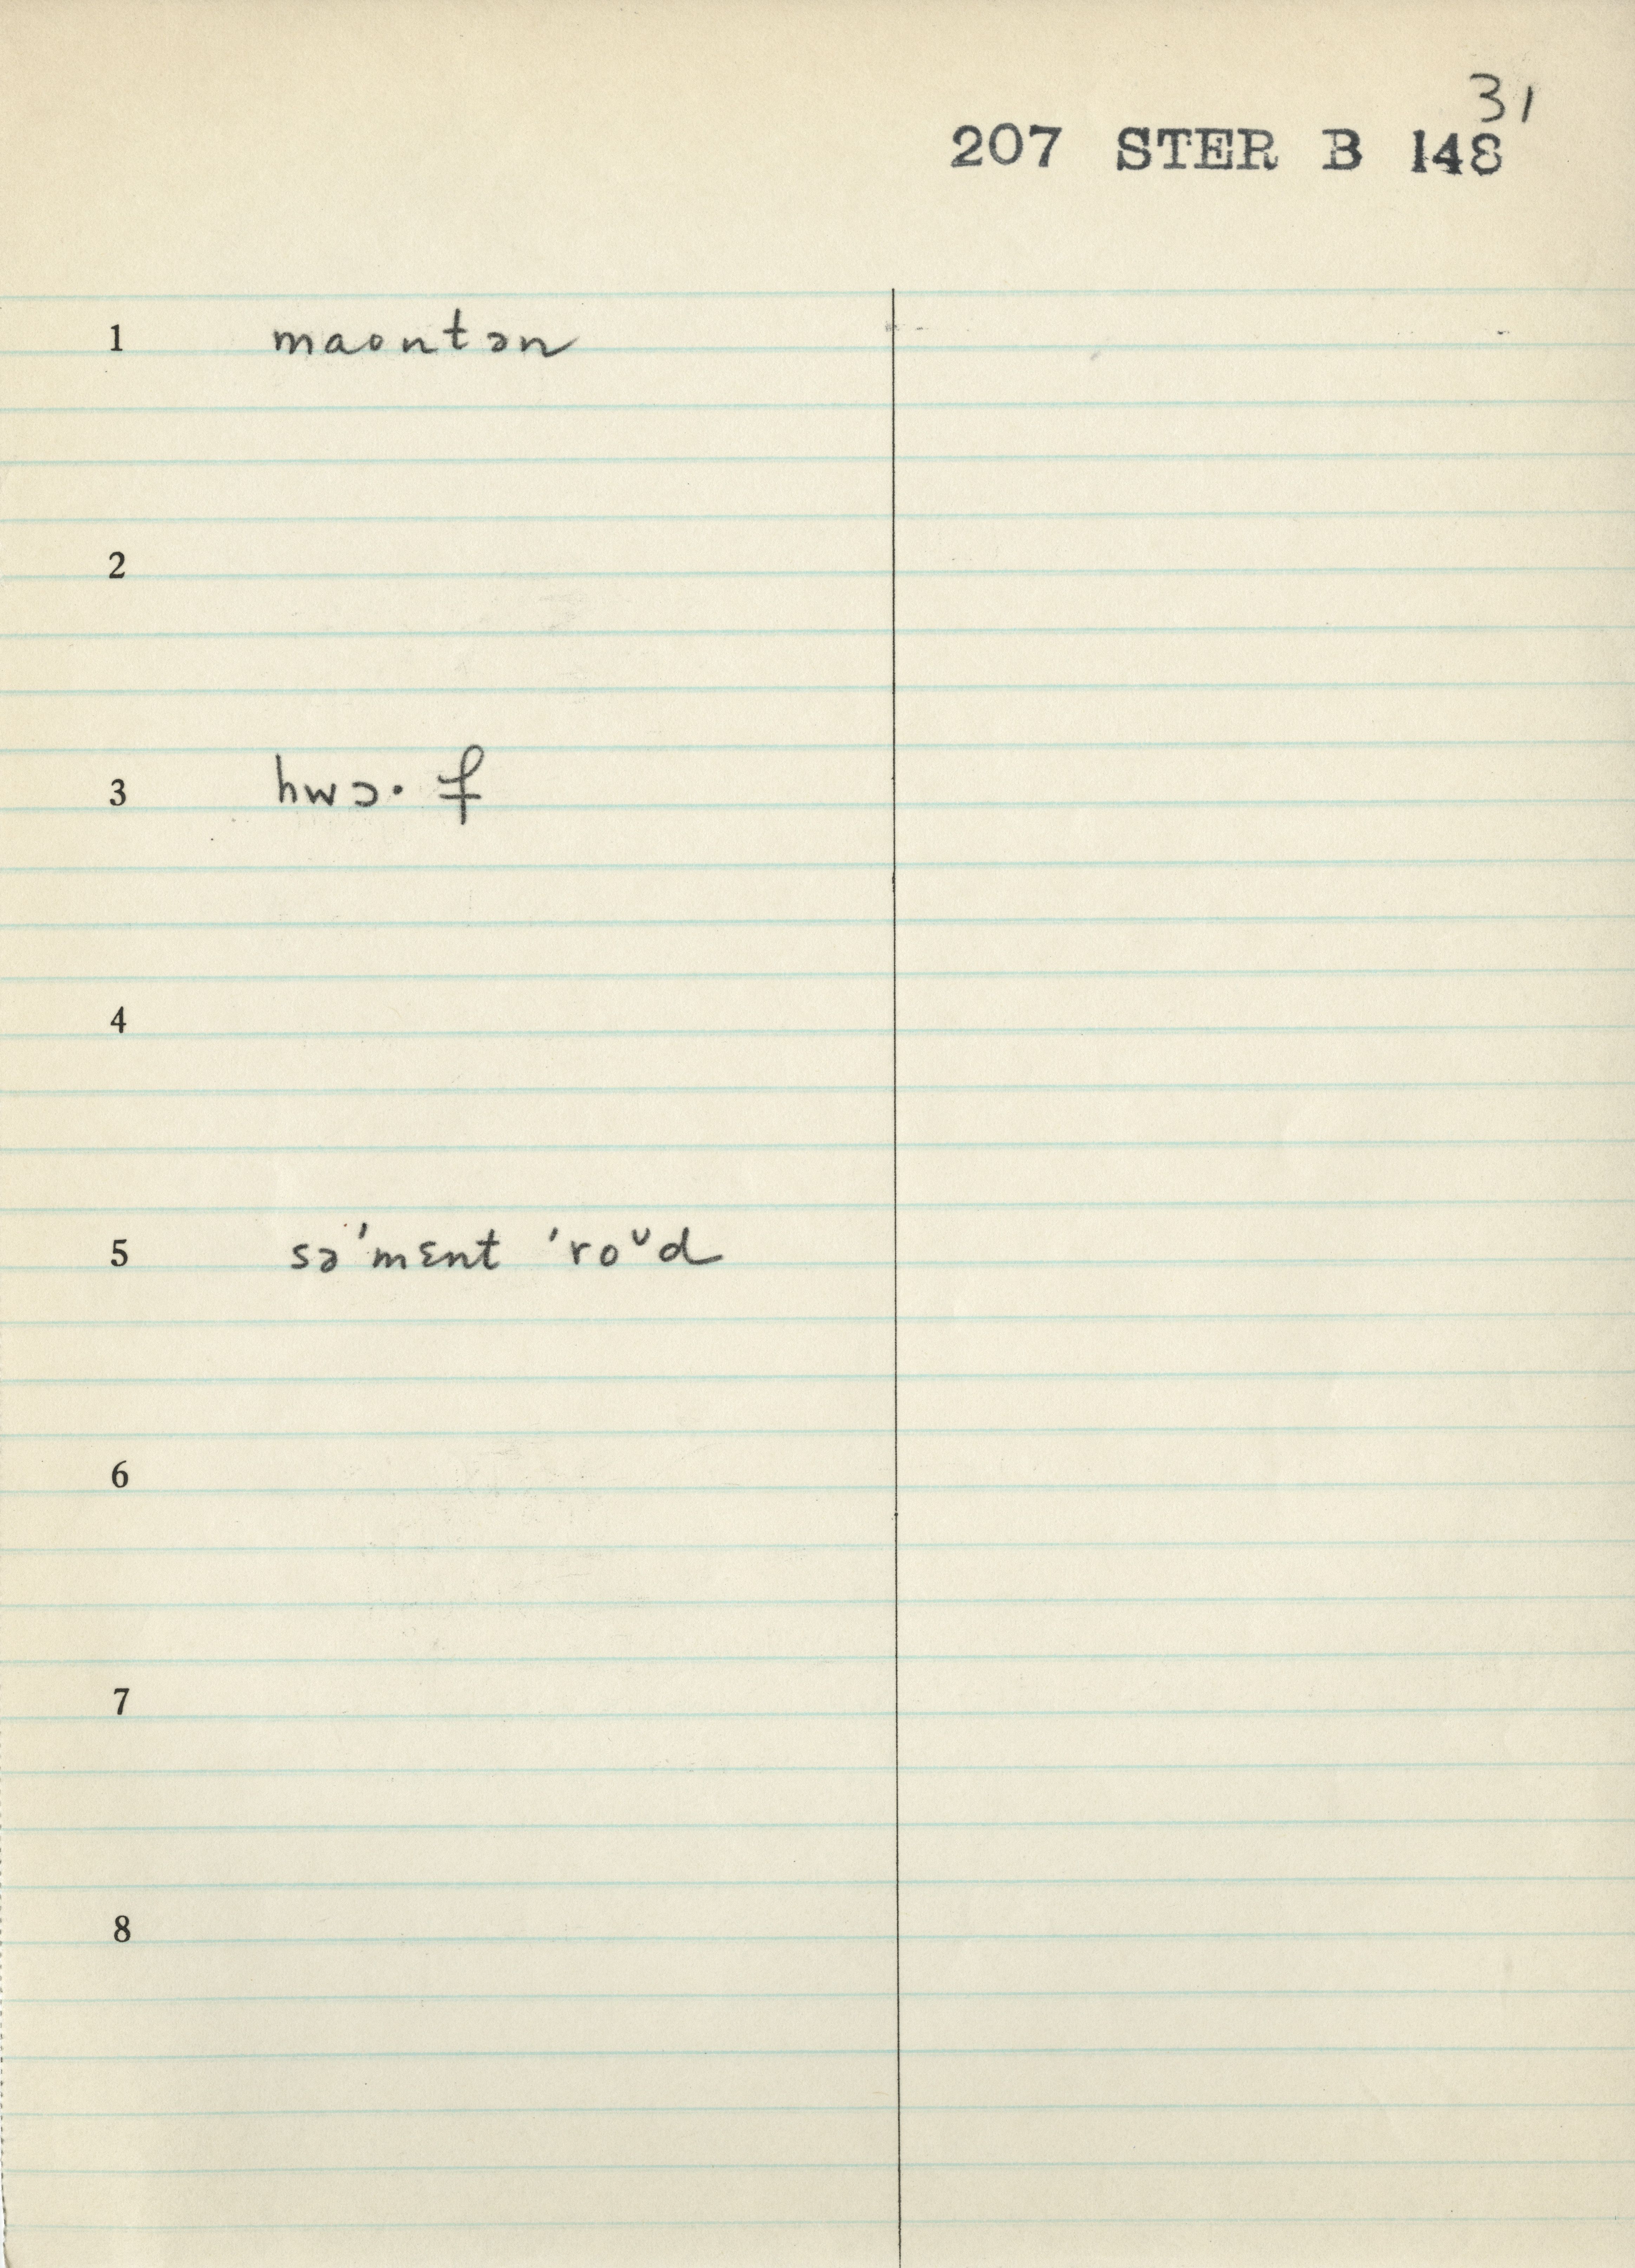 31
207 STER B 148
1 maontən
2
3 hwɔ· f
4
5 sə'mɛnt 'roᴜd
6
7
8